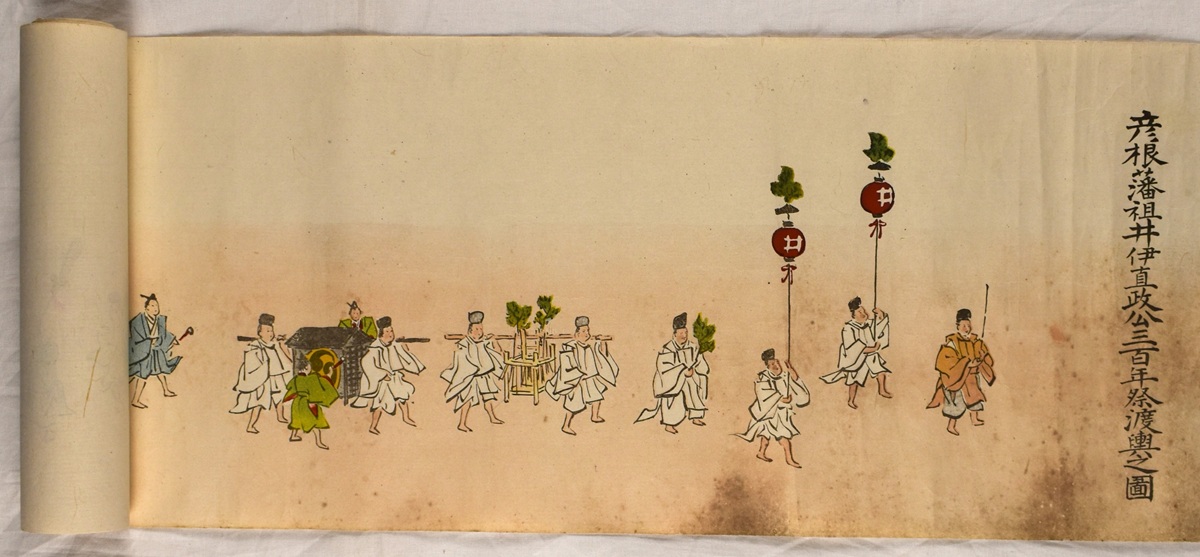 彦根藩祖井伊直政公三百年祭渡輿之圖
井
井